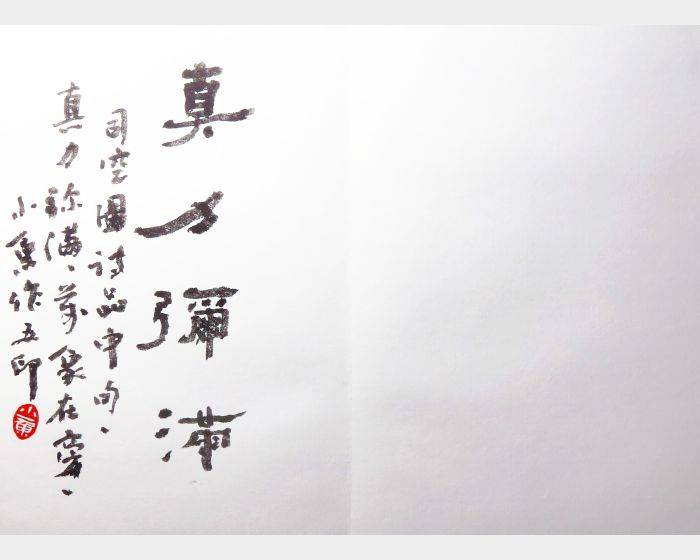 真力彌滿
司空圖詩品中句、
真力弥滿、萬象在旁、
小作五印